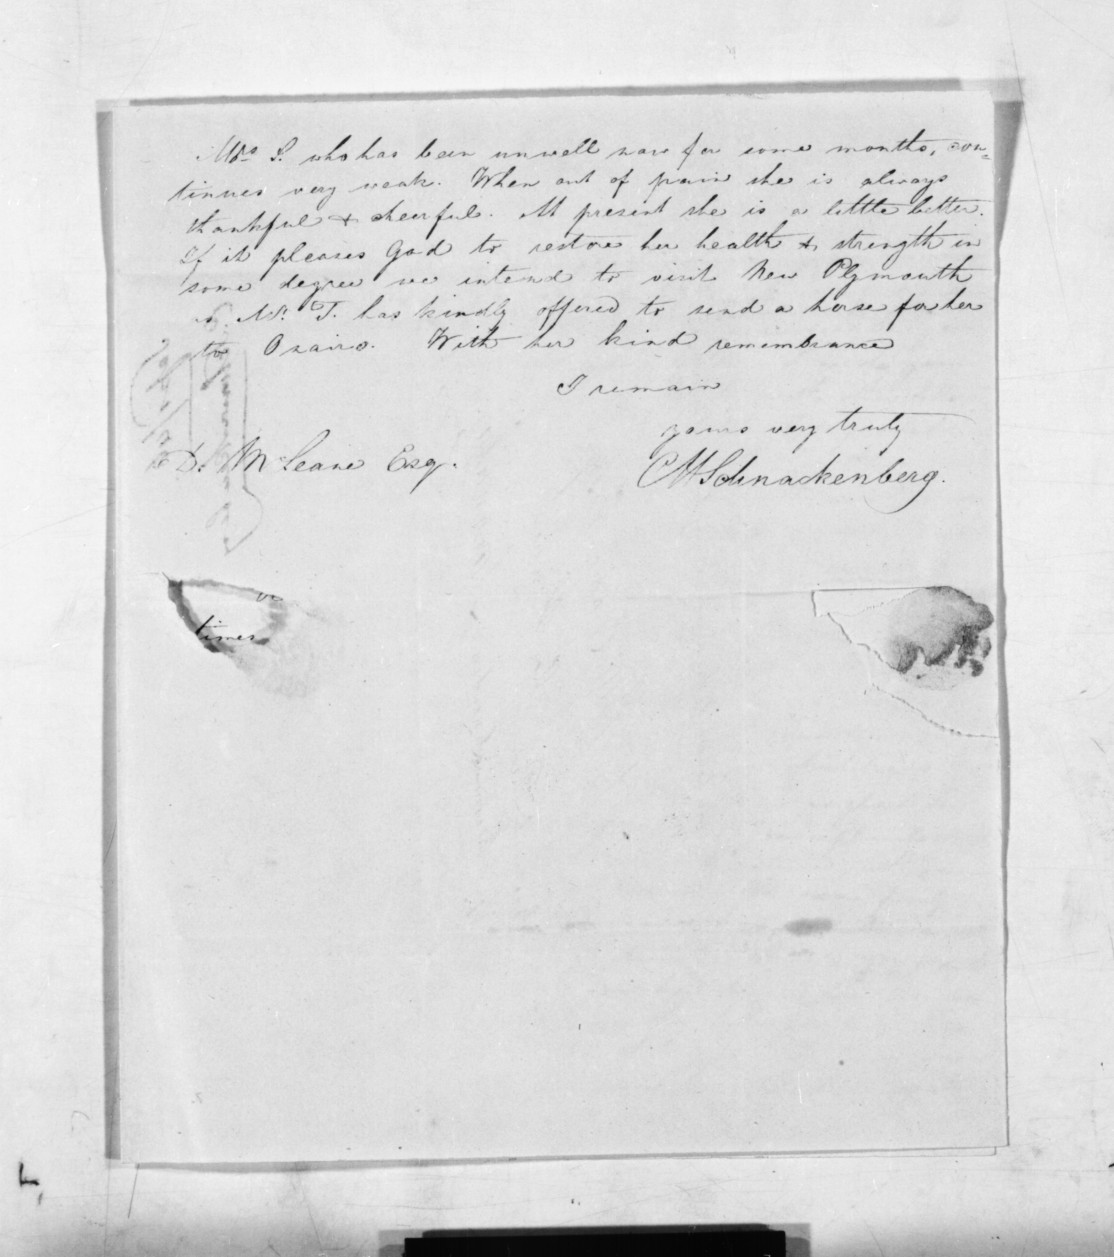 Mrs. S. who has been unwell now for some months, con-
tinues very weak. When out of pain she is always
thankful & cheerful. At present she is a little better.
If it pleases God to restore her health & strength in
some degree we intend to visit New Plymouth
Mr. T. has kindly offered to send a horse for her
to Onairo. With her kind remembrance
I remain
yours very truly
D. McLeane Esq.
CH Schnackenberg.
or
times